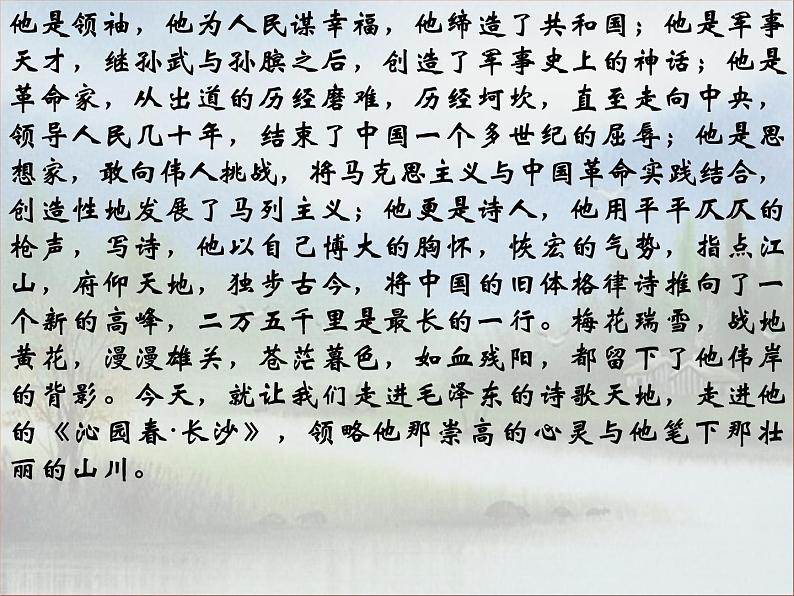 他是领袖，他为人民谋幸福，他缔造了共和国；他是军事
天才，继孙武与孙膑之后，创造了军事史上的神话；他是
革命家，从出道的历经磨难，历经坷坎，直至走向中央，
领导人民几十年，结束了中国一个多世纪的屈辱；他是思
想家，敢向伟人挑战，将马克思主义与中国革命实践结合，
创造性地发展了马列主义；他更是诗人，他用平平仄仄的
枪声，写诗，他以自己博大的胸怀，恢宏的气势，指点江
山，府仰天地，独步古今，将中国的旧体格律诗推向了一
个新的高峰，二万五千里是最长的一行。梅花瑞雪，战地
黄花，漫漫雄关，苍茫暮色，如血残阳，都留下了他伟岸
的背影。今天，就让我们走进毛泽东的诗歌天地，走进他
的《沁园春·长沙》，领略他那崇高的心灵与他笔下那壮
丽的山川。